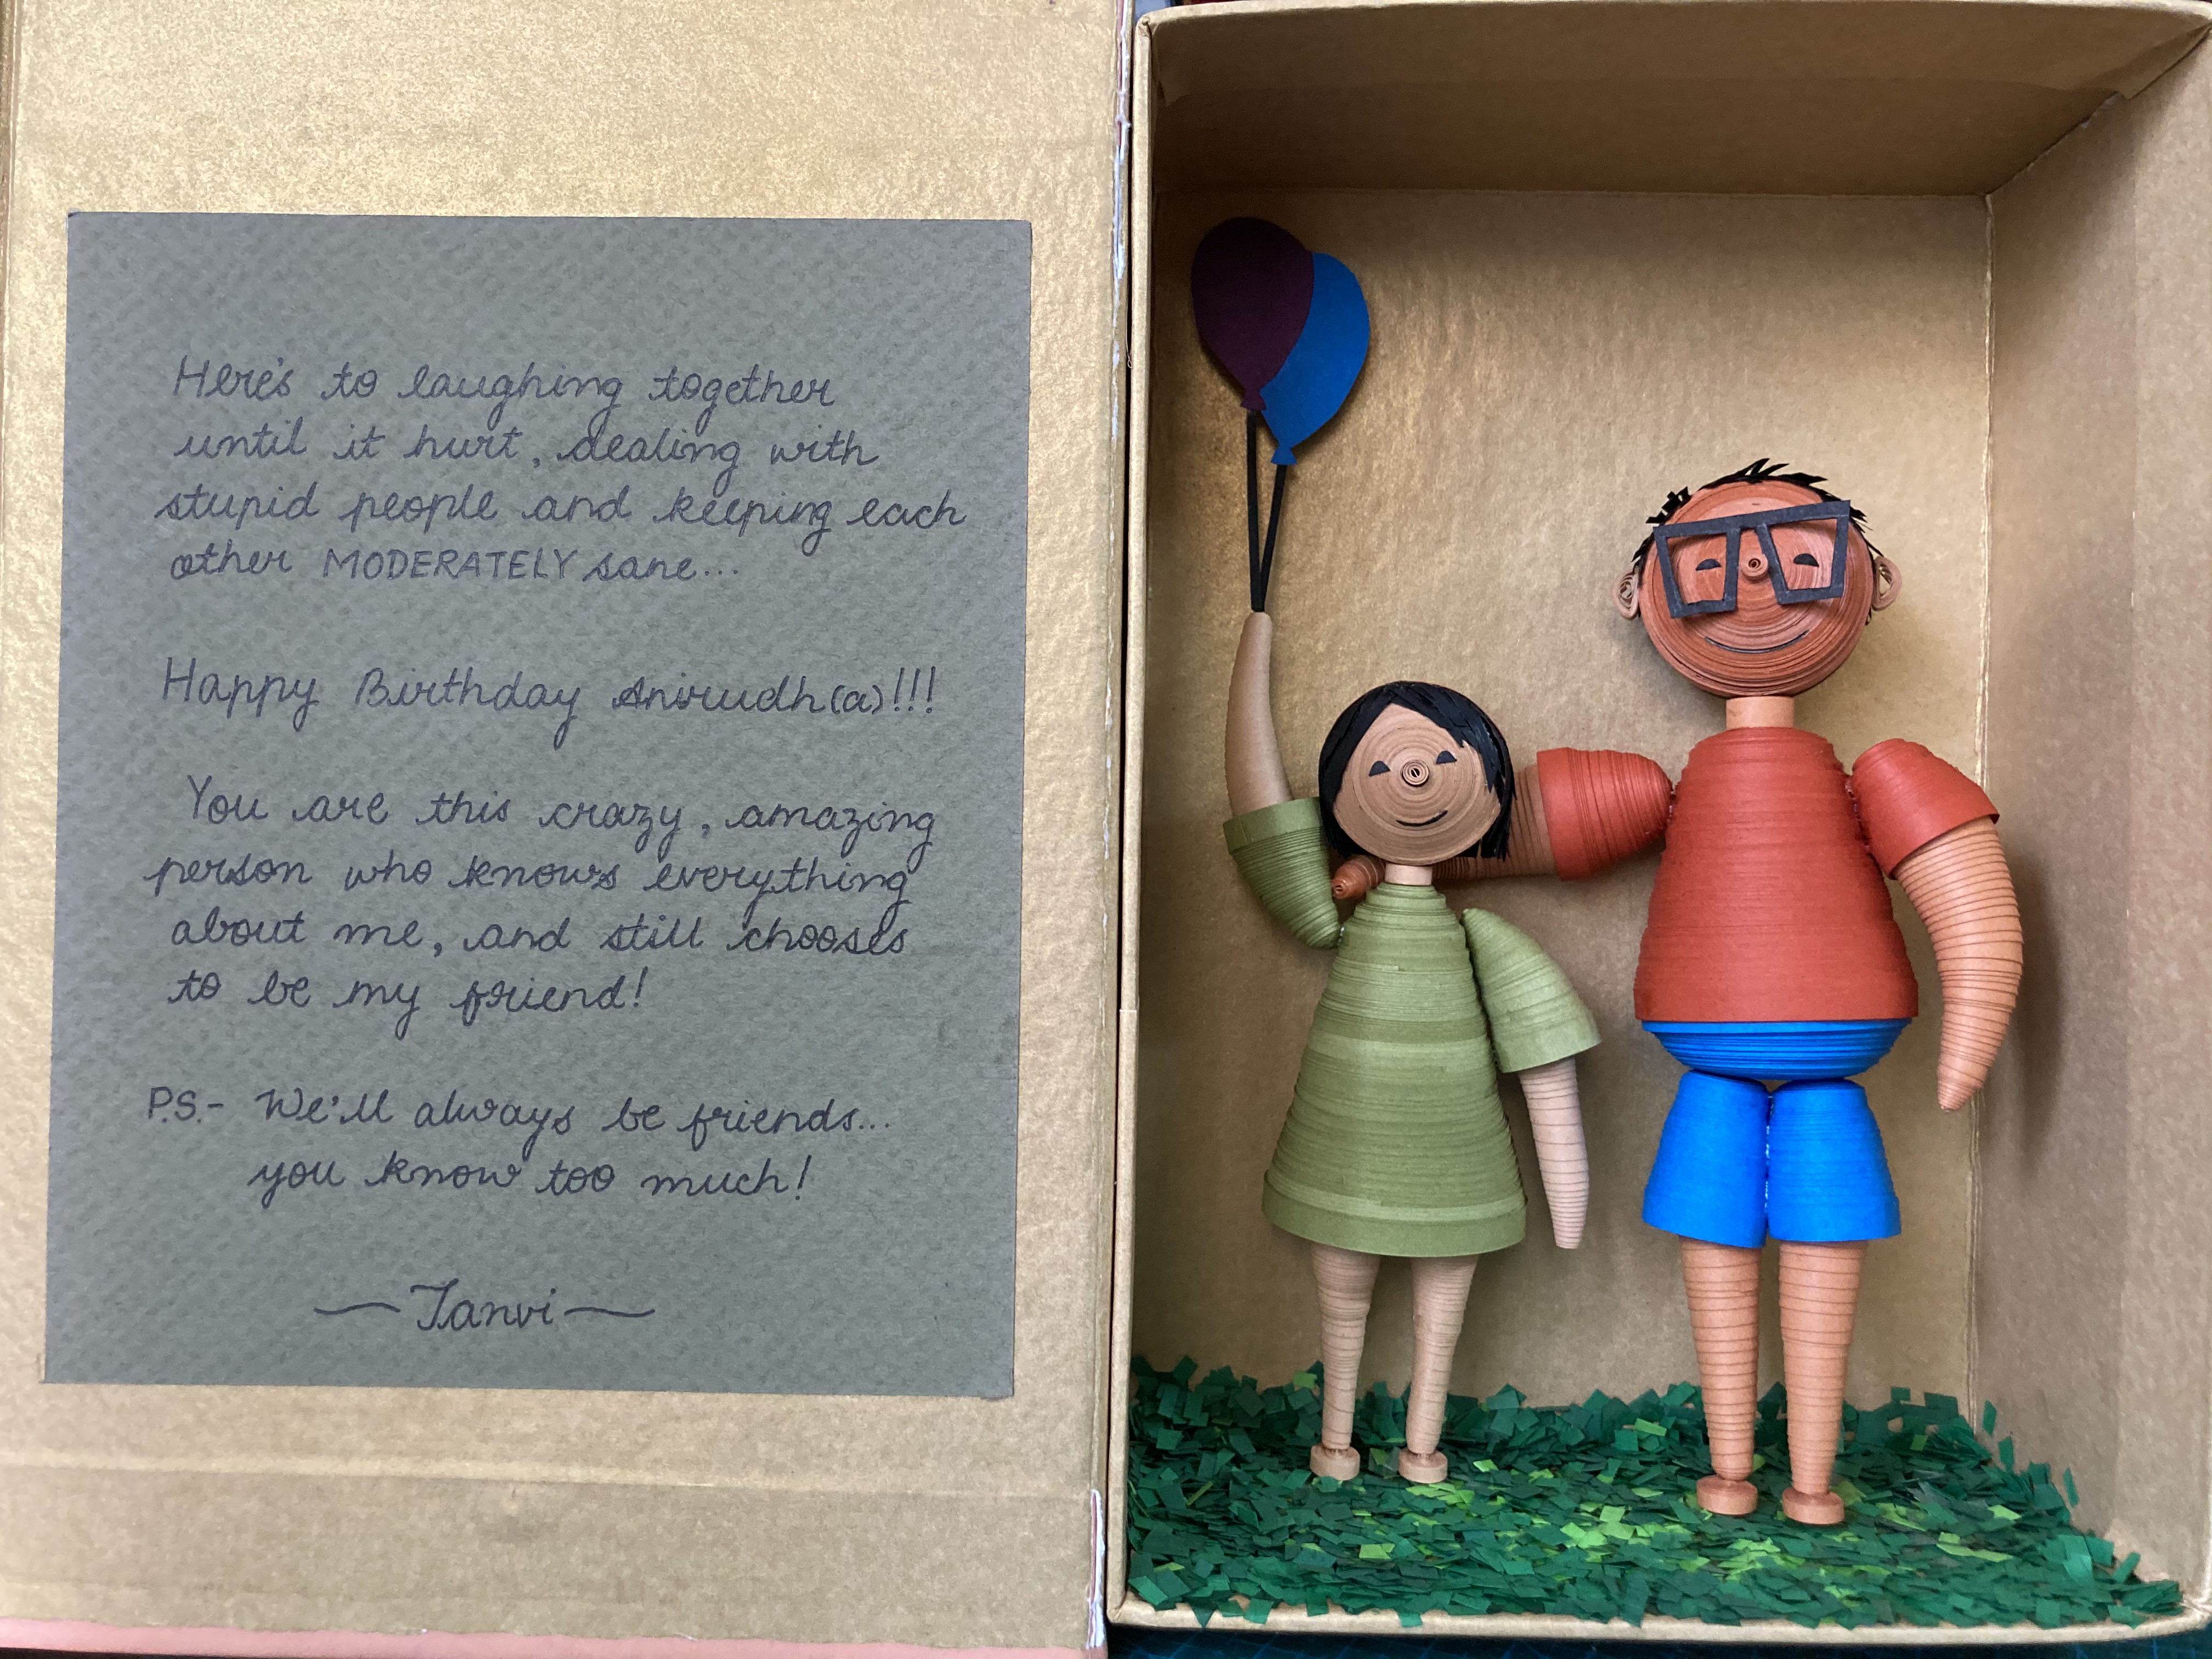 Here's to laughing together
until it hurt, dealing with
stupid people and keeping each
other MODERATELY sane...
Happy Birthday Anirudh(a)!!!
You are this crazy, amazing
person who knows everything
about me, and still chooses
to be my friend!
P.S.- We'll always be friends...
you know too much!
—Tanvi—